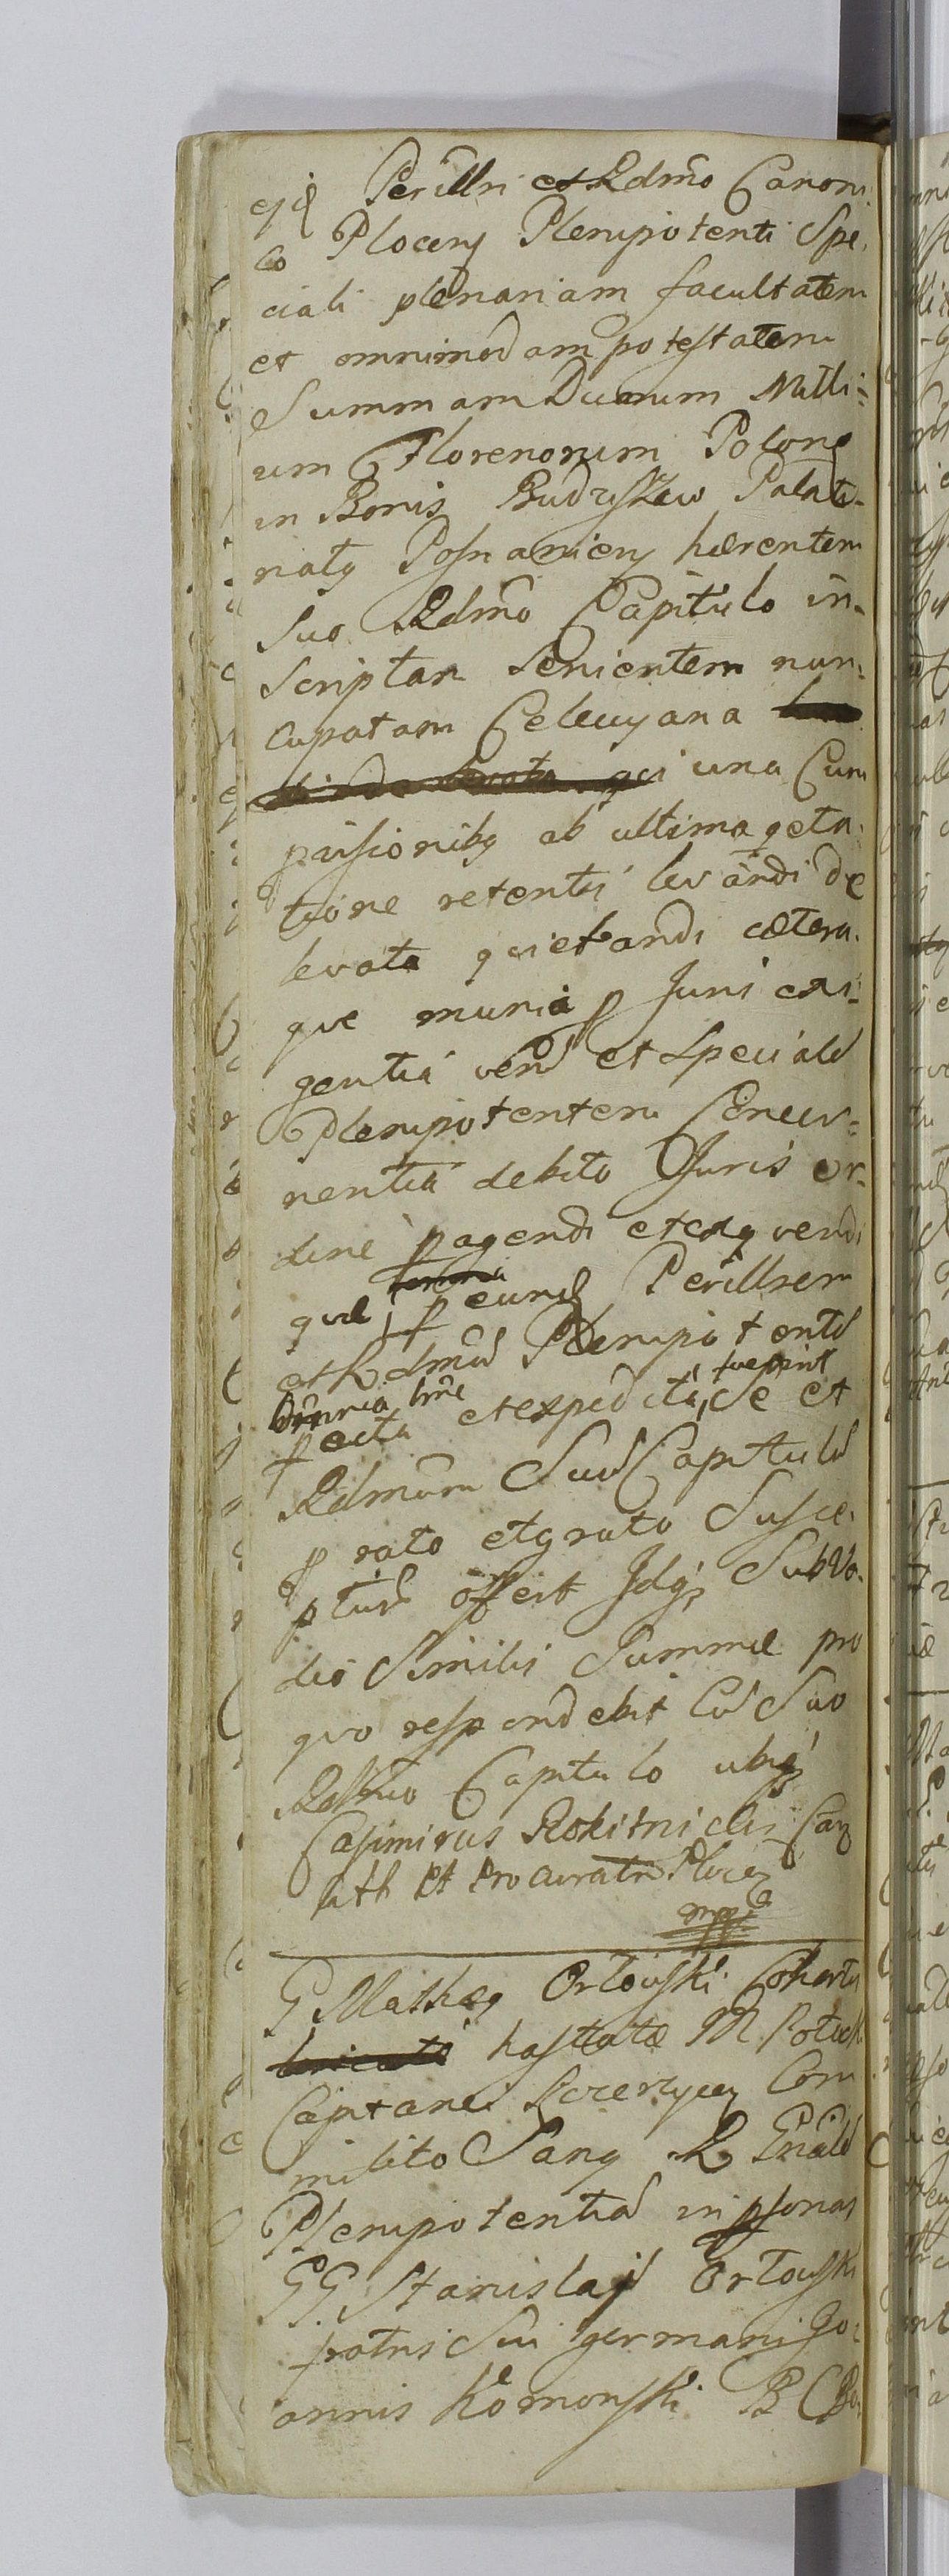 ejd Perillri et Rdmo Canoni
co Plocens Plenipotenti Spe
ciali plenariam facultatem
et omnimodam potestatem
Summam Duorum Milli=
um Florenorum Polona
in Bonis Budziszkew Palati-
natus Posnaniens hærentem
Suo Rdmo Capitulo in-
scriptam Senientem nun-
cupatam Celecyana
una Cum
pvisionibus ab ultima qeta-
tione retentis levandi de
levata quietandi cætera-
que munia p Juri exi-
gentia vend et speciale
Plenipotentem Concer-
nentia debito Juris or-
dine pagendi etexqvendi
quæ p eund Perillrem
et Rdmu Plenipotente
omnia hme
pacta et expedita, fuerint Se et
Rdmum Suu Capitulu
p rato et grato Susce-
pturu offert Idq; Sub Va-
dio Similis Summæ pro
quo respondebit Cu Suo
Rdmo Capitulo ubiq;
Casimirus Rokitnicki Can
Cath et Procurator Plocen
mpp
G Mathæus Orłowski Cohortis
hastatæ M Potock
Capitanei Lcerzycen Com
milito Sanus R Gnale
Plenipotentia in psonas
GG Stanislai Orłowski
fratris Sui germani Jo-
annis Komorski B